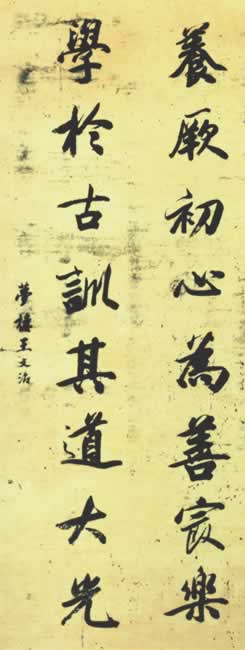 養厥初心為善寂樂
學於古訓其道大光
夢樓王文治